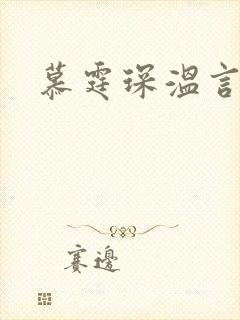 慕霆琛温言
赛边